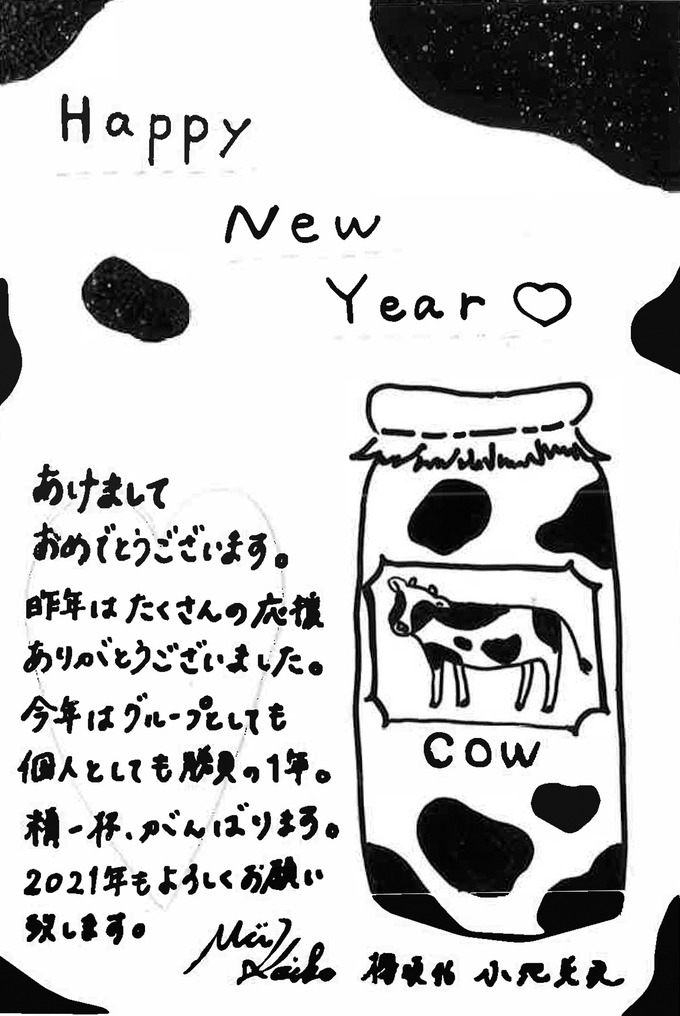 Happy
New
Year♡
あけまして
おめでとうございます。
昨年はたくさんの応援
ありがとうございました。
今年はグループとしても
個人としても勝負の1年。
精一杯、がんばります。
2021年もよろしくお願い
致します。
COW
櫻坂46 小池美波